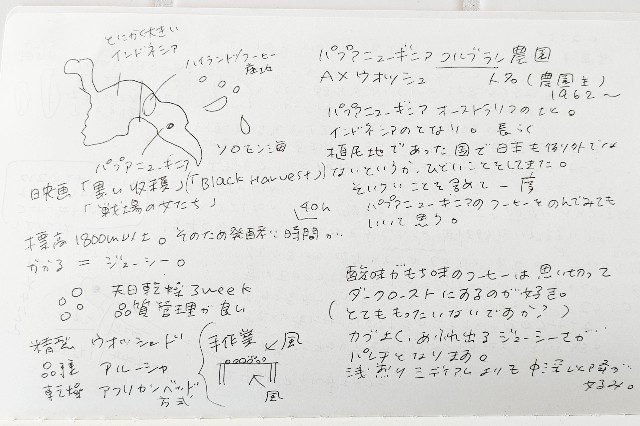 とにかく大きい
インドネシア
ハイランドコーヒー
産地
ソロモン海
パプアニューギニア
映画「黒い収穫」(「Black Harvest」)
「戦場の女たち」
40h
標高1800m以上。そのため発酵に時間が
かかる = ジューシー。
天日乾燥 3week
品質管理が良い
精製 ウオッシュド
品種 アルーシャ
乾燥 アフリカンベッド
方式
手作業
風
風
パプアニューギニア コルブラン農園
AXウオッシュ 人名(農園主)
1962〜
パプアニューギニア オーストラリアの北。
インドネシアのとなり。長らく
植民地であった国で日本も例外では
ないというか、ひどいことをしてきた。
そういうことを含めて一度
パプアニューギニアのコーヒーをのんでみても
いいと思う。
酸味がもち味のコーヒーは思い切って
ダークローストにするのが好き。
(とてももったいないですか?)
力づよく、あふれ出るジューシーさが
パンチとなります。
浅煎りミディアムよりも中深
好み。